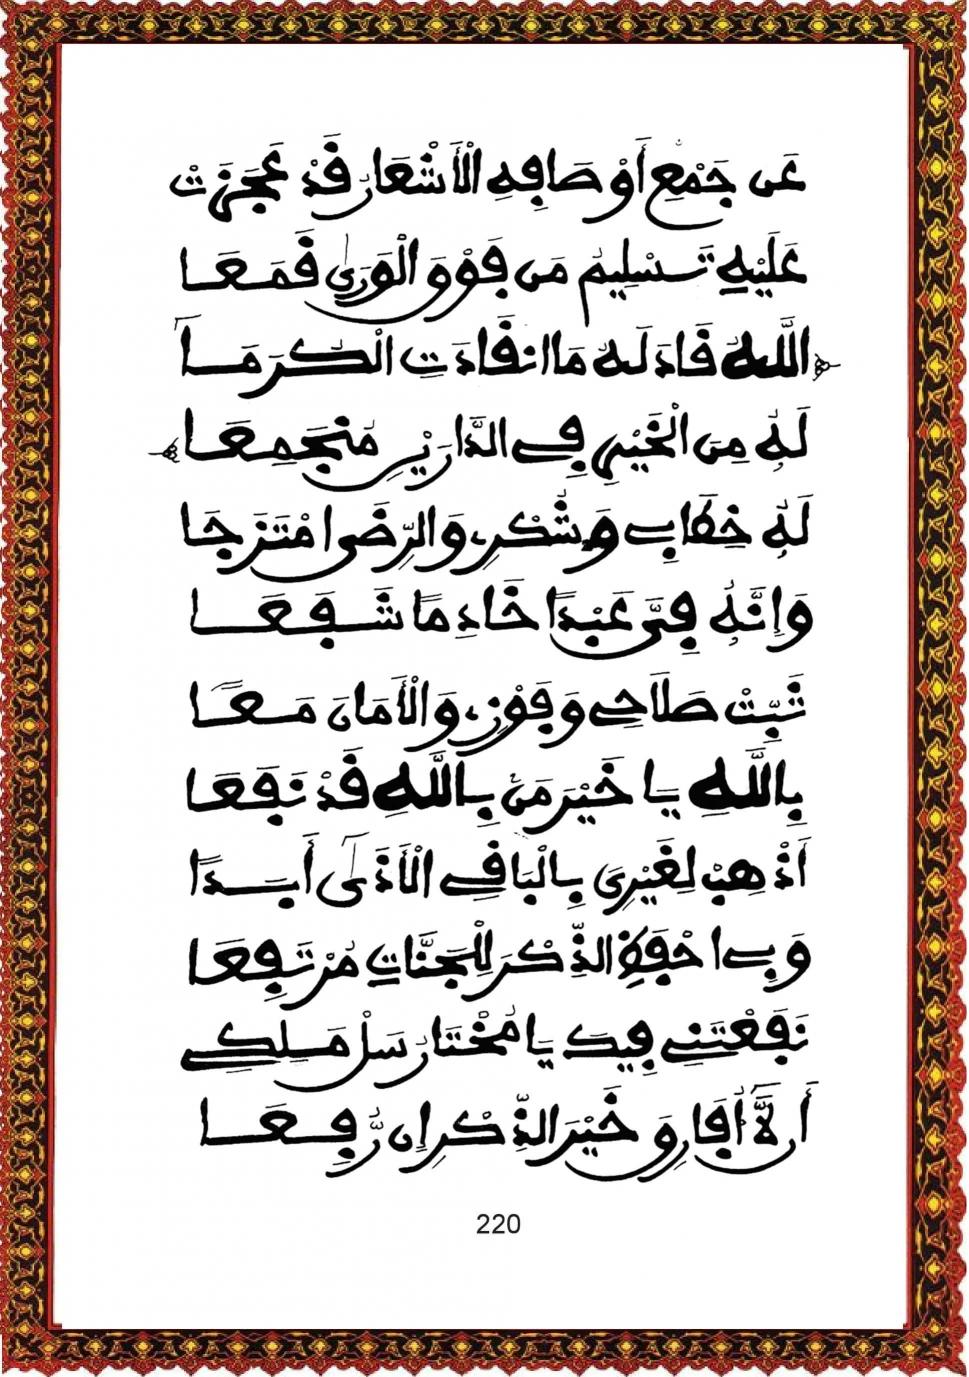 عَن جَمْعِ أَوْصَافِهِ الْأَشْعَارُ قَدْ عَجَزَتْ
عَلَيْهِ تَسْلِيمُ مَن فَوْقَ الْوَرَىٰ قَمَعَا
اللَّهُ قَادَ لَهُ مَا انقَادَتِ الْكُرَمَآ
لَهُ مِنَ الْخَيْرِ فِي الدَّارَيْنِ مُنجَمِعَا
لَهُ خِطَابِي وَشُكْرِي وَالرِّضَى امْتَزَجَا
وَإِنَّهُ فِيَّ عَبْدًا خَادِمًا شَفَعَا
ثَبِّتْ صَلَاحِي وَفَوْزِي وَالْأَمَانَ مَعًا
بِاللَّهِ يَا خَيْرَ مَن بِاللَّهِ قَدْ نَفَعَا
اَذْهِبْ لِغَيْرِي بِالْبَاقِي الْأَذَىٰ أَبَدًا
وَبِي احْفَظِ الذِّكْرَ لِلْجَنَّاتِ مُرْتَفِعَا
نَفَعْتَنِي فِيكَ يَا مُخْتَارُ سَلْ مَلِكِي
أَلَّآ أُفَارِقَ خَيْرَ الذِّكْرِ إِن رُّفِعَا
220